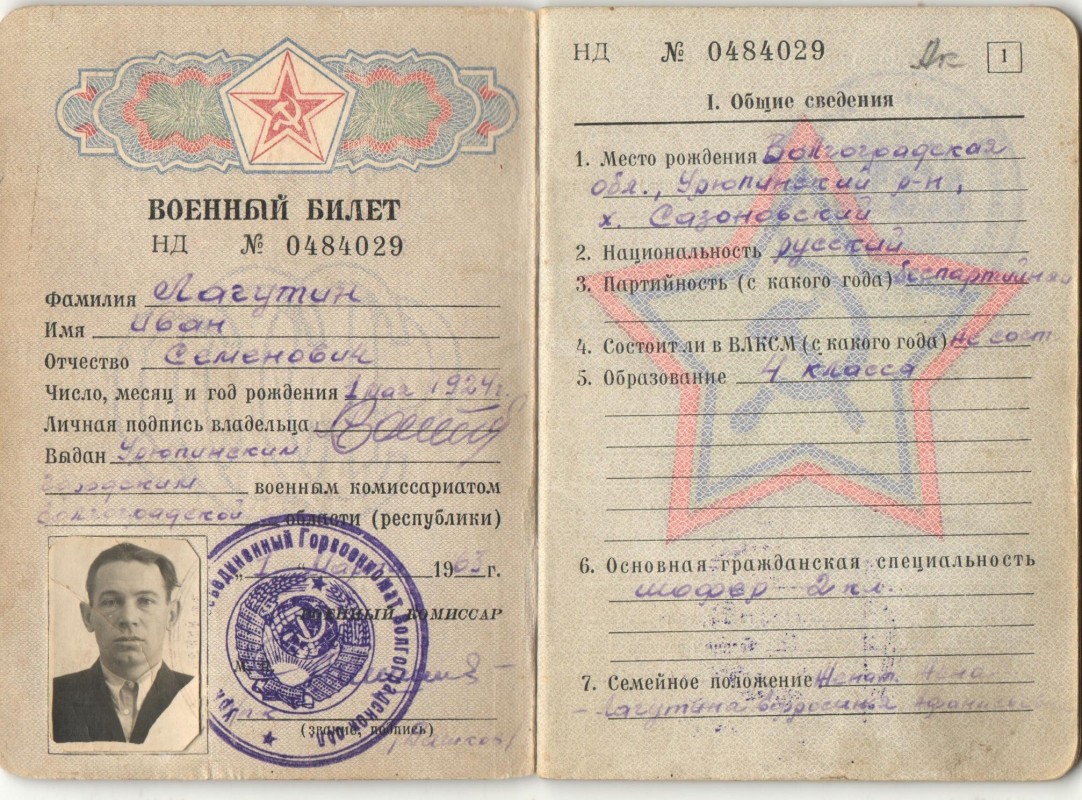 ВОЕННЫЙ БИЛЕТ
НД № 0484029
Фамилия Лагутин
Имя Иван
Отчество Семенович
Число, месяц и год рождения 1 мая 1924 г.
Личная подпись владельца
Выдан Урюпинским
городским военным комиссариатом
Волгоградской области (республики)
1963 г.
ВОЕННЫЙ КОМИССАР
(звание, подпись)
Горвоенкомат Волгоградской обл
НД № 0484029
1
I. Общие сведения
1. Место рождения Волгоградская
обл., Урюпинский р-н,
х. Сазоновский
2. Национальность русский
3. Партийность (с какого года) беспартийный
4. Состоит ли в ВЛКСМ (с какого года) не сост.
5. Образование 4 класса
6. Основная гражданская специальность
шофер 2 кл.
7. Семейное положение Женат. Жена
- Лагутина